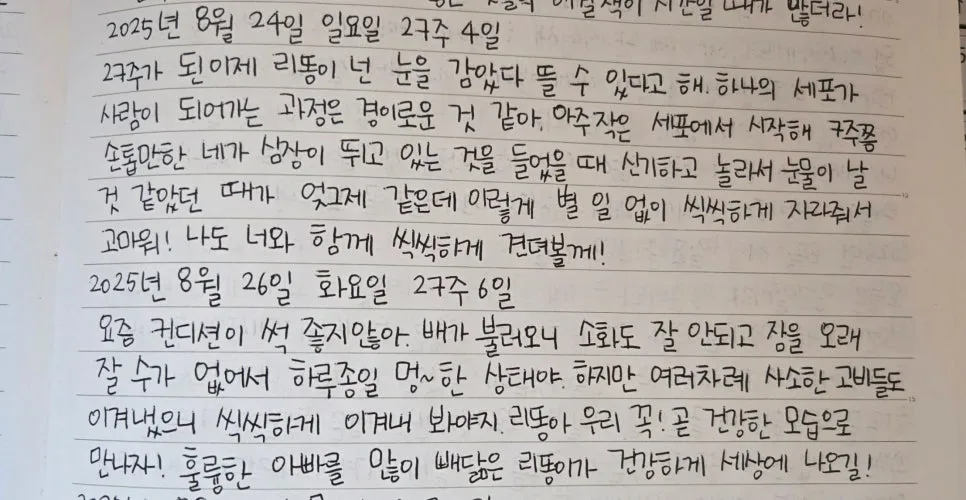 시간일 때가 많더라!
2025년 8월 24일 일요일 27주 4일
27주가 된 이제 리똥이 넌 눈을 감았다 뜰 수 있다고 해. 하나의 세포가
사람이 되어가는 과정은 경이로운 것 같아. 아주작은 세포에서 시작해 7주쯤
손톱만한 네가 심장이 뛰고 있는 것을 들었을 때 신기하고 놀라서 눈물이 날
것 같았던 때가 엊그제 같은데 이렇게 별 일 없이 씩씩하게 자라줘서
고마워! 나도 너와 함께 씩씩하게 견뎌볼께!
2025년 8월 26일 화요일 27주 6일
요즘 컨디션이 썩 좋지않아. 배가 불러오니 소화도 잘 안되고 잠을 오래
잘 수가 없어서 하루종일 멍~한 상태야. 하지만 여러차례 사소한 고비들도
이겨냈으니 씩씩하게 이겨내 봐야지. 리똥아 우리 꼭! 곧 건강한 모습으로
만나자! 훌륭한 아빠를 많이 빼닮은 리똥이가 건강하게 세상에 나오길!